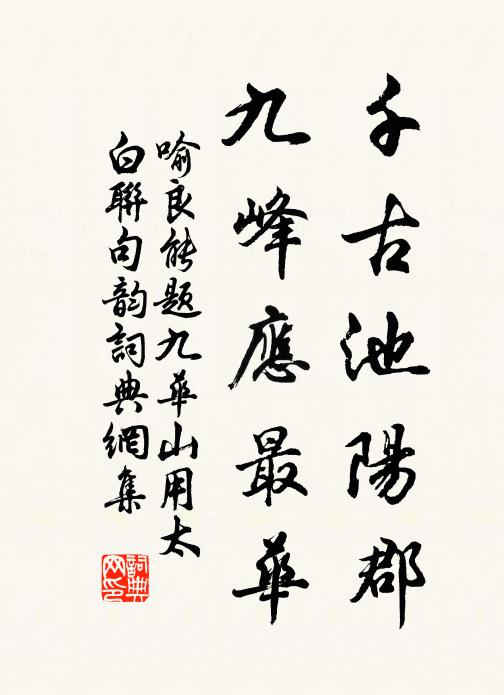 千古池陽郡
九峰應最華
喻良能題九華山用太
白聯句韵詞典網集
詞典网印